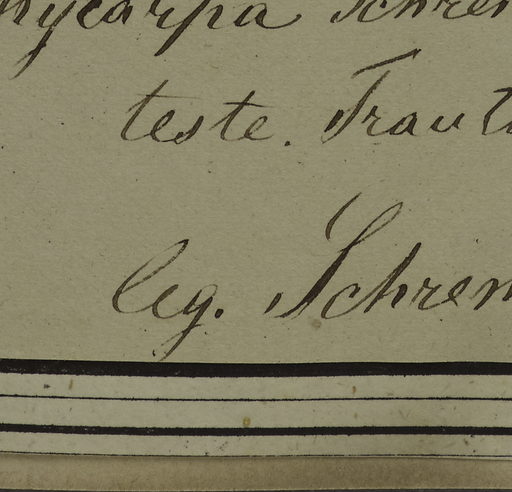 hycarpa Schren
teste. Traut
leg. Schren